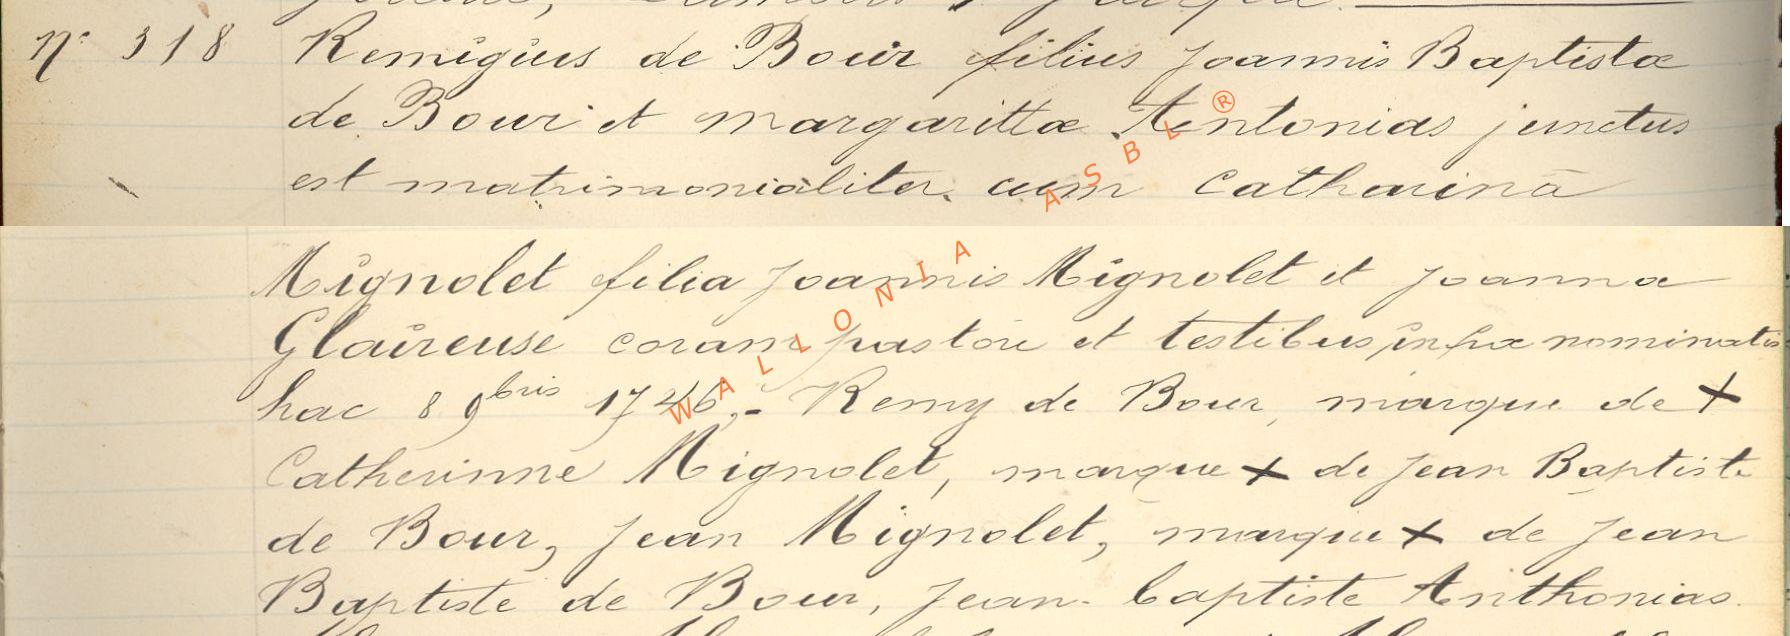 n° 318 Remigius de Bour filius Joannis Baptistæ
de Bour et margarittæ Antonias junctus
est matrimonialiter cum Catharinâ
Mignolet filia Joannis Mignolet et Joannæ
Glaireuse coram pastore et testibus infra nominatis
hac 8 9bris 1746.- Remy de Bour, marque de X
Catherinne Mignolet, marque X de Jean Baptiste
de Bour, Jean Mignolet, marque X de Jean
Baptiste de Bour, Jean-baptiste Anthonias.
WALLONIA ASBL ®